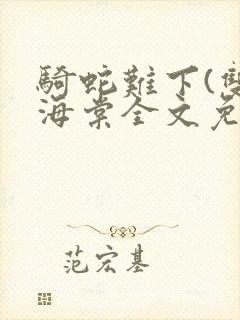 騎蛇難下(雙
海棠全文免
范宏基